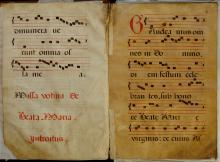 dinumera ve
runt omnia os
sa me a.
Missa votiva De
Beata Maria.
Introitus
Gaudea mus om
nes in Do mino,
di em festum cele
bran tes, sub hono
re Beatæ Mari æ
virginis: de cuius